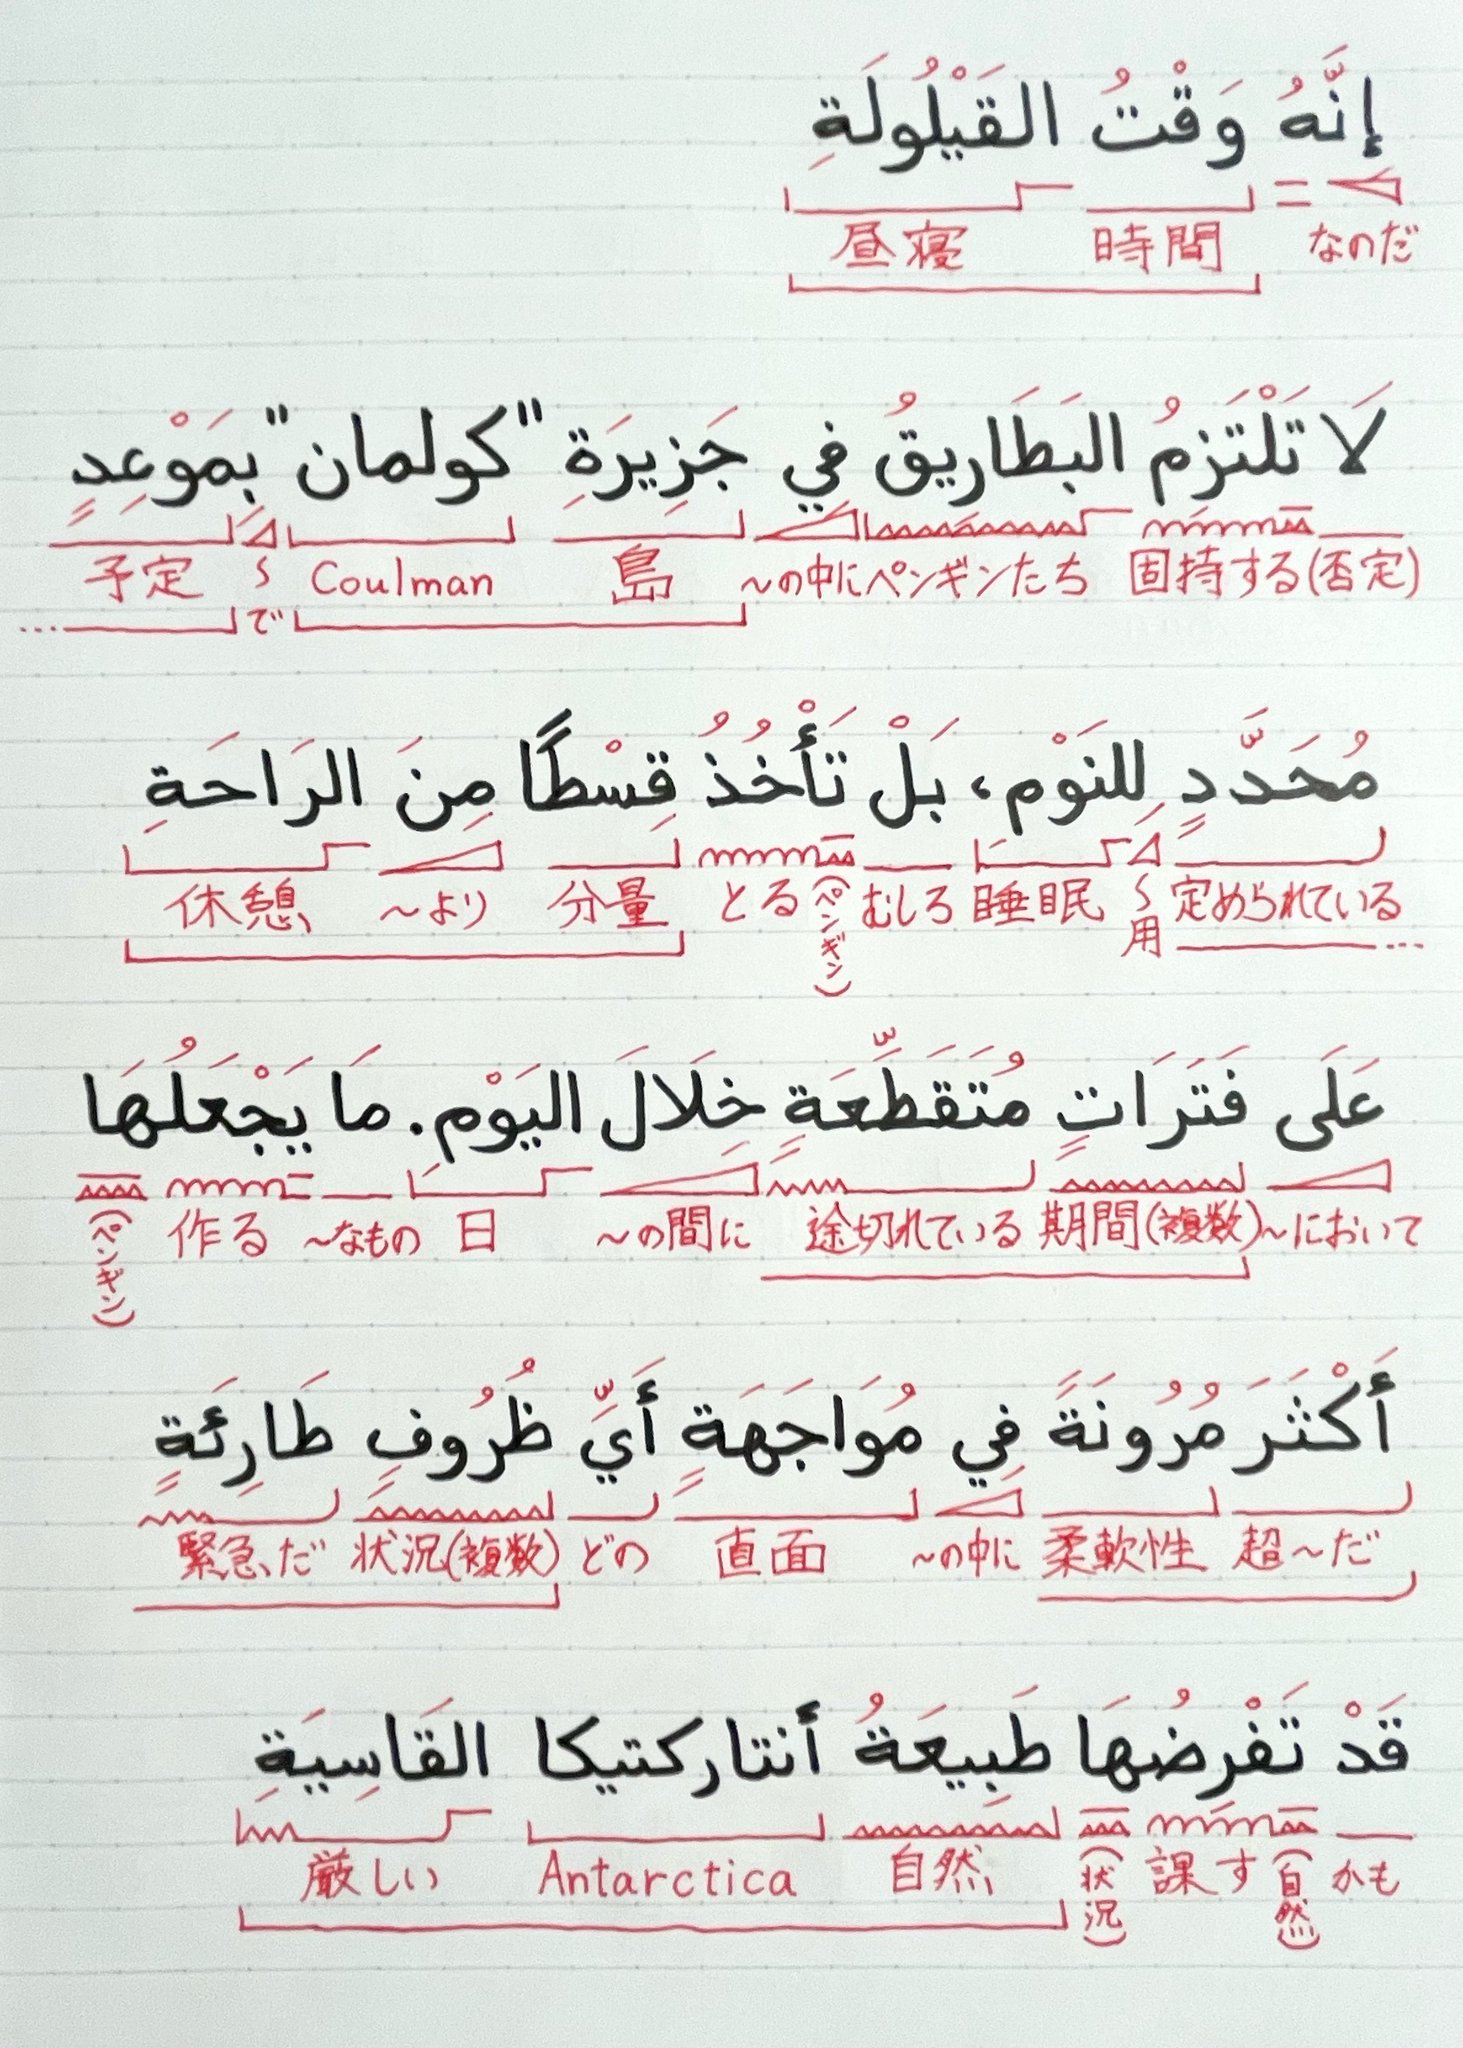 إنَّهُ وَقْتُ القَيْلُولَةِ
なのだ 時間 昼寝
لَا تَلْتَزِمُ البَطَارِيقُ فِي جَزِيرَةِ "كولمان" بِمَوْعِدٍ
固持する(否定) ペンギンたち ~の中に 島 Coulman ~で 予定
مُحَدَّدٍ لِلنَوْمِ، بَلْ تَأْخُذُ قِسْطًا مِنَ الرَاحَةِ
定められている ~用 睡眠 むしろ (ペンギン) とる 分量 ~より 休憩
عَلَى فَتَرَاتٍ مُتَقَطِّعَةٍ خِلَالَ اليَوْمِ. مَا يَجْعَلُهَا
~において 期間(複数) 途切れている ~の間に 日 ~なもの 作る (ペンギン)
أَكْثَرَ مُرُونَةً فِي مُوَاجَهَةِ أَيِّ ظُرُوفٍ طَارِئَةٍ
超~だ 柔軟性 ~の中に 直面 どの 状況(複数) 緊急だ
قَدْ تَفْرِضُهَا طَبِيعَةُ أنتاركتيكا القَاسِيَةِ
かも (自然) 課す (状況) 自然 Antarctica 厳しい